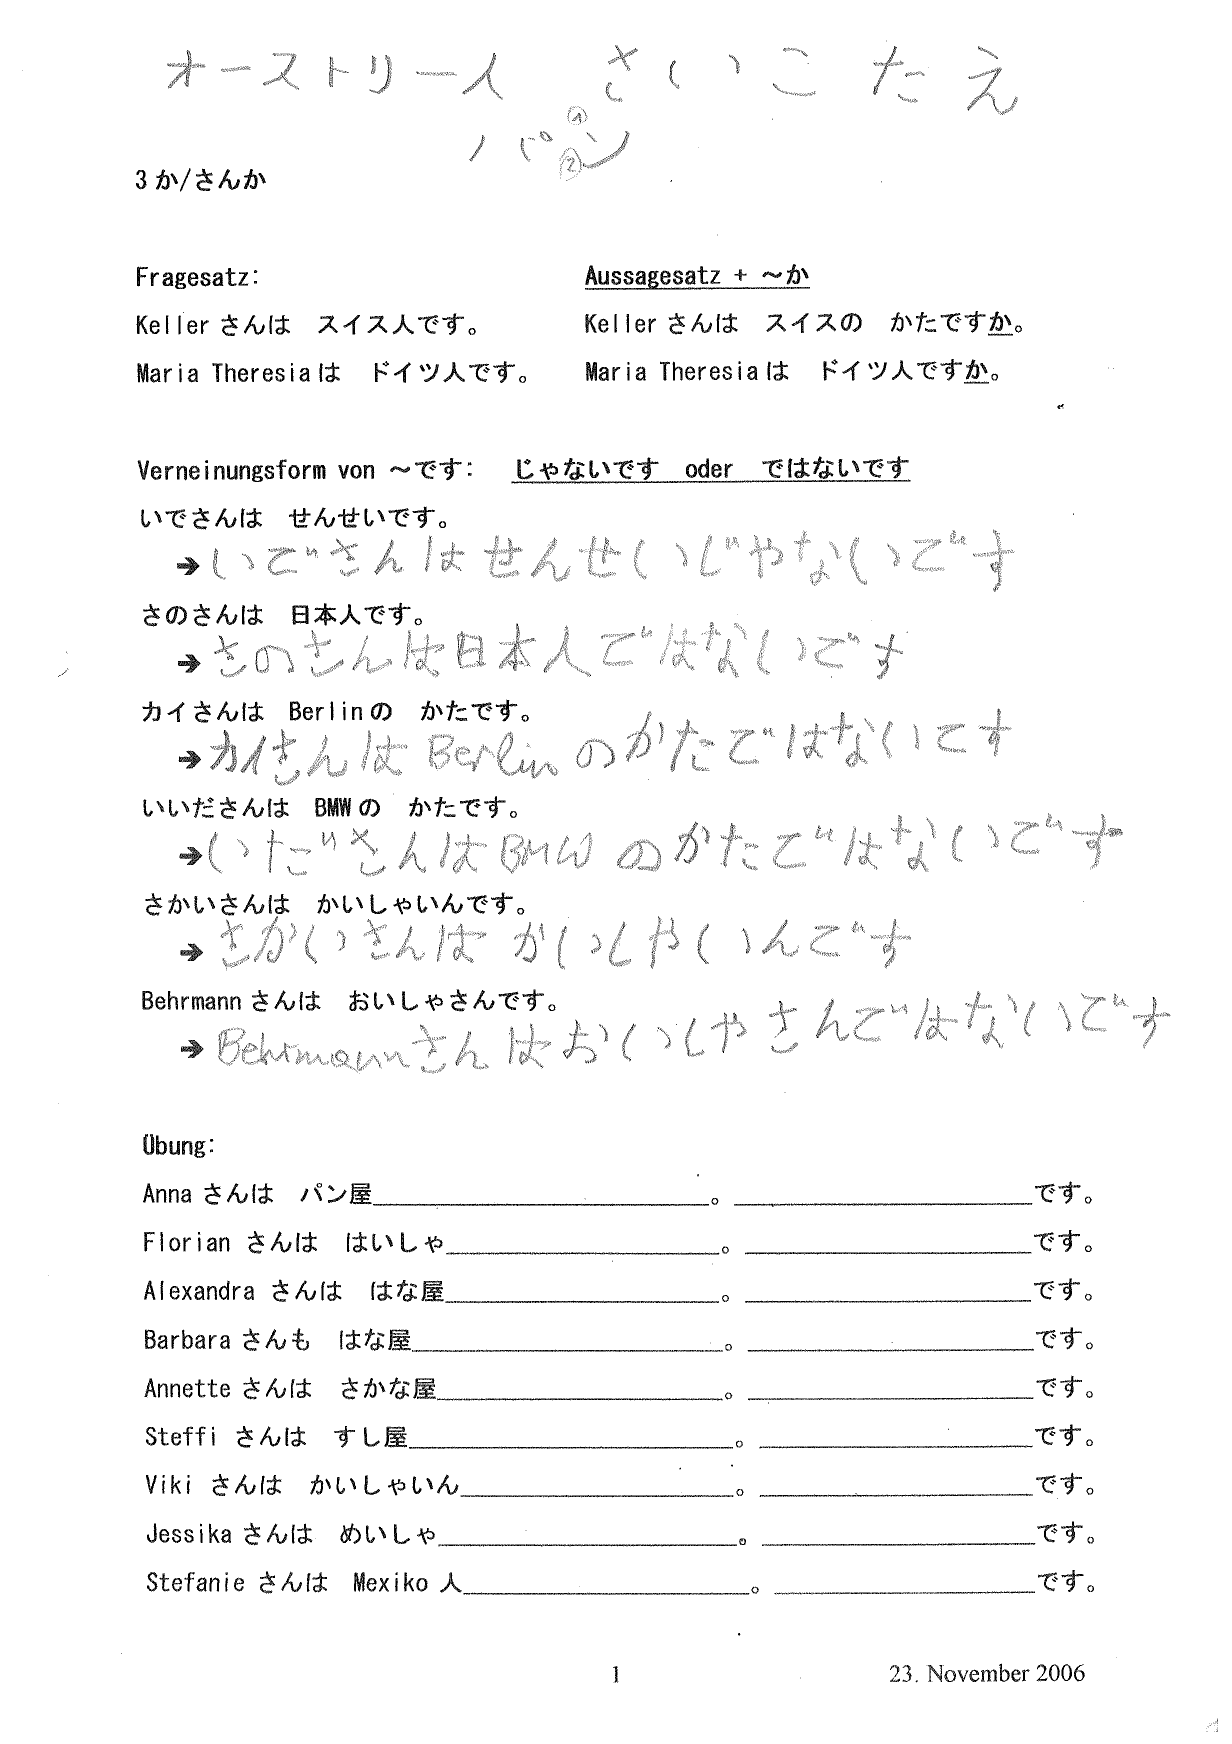 オーストリー人 さいこたえ
パン
① ②
3 か/さんか
Fragesatz: Aussagesatz + ～か
Keller さんは スイス人です。 Keller さんは スイスの かたですか。
Maria Theresia は ドイツ人です。 Maria Theresia は ドイツ人ですか。
Verneinungsform von ～です: じゃないです oder ではないです
いでさんは せんせいです。
➔いでさんはせんせいじやないです
さのさんは 日本人です。
➔さのさんは日本人ではないです
カイさんは Berlin の かたです。
➔カイさんは Berlin のかたではないてす
いいださんは BMW の かたです。
➔いださんは BMW のかたではないです
さかいさんは かいしゃいんです。
➔さかいさんは かいしやいんです
Behrmann さんは おいしゃさんです。
➔Behrmannさんはおいしやさんではないです
Übung:
Anna さんは パン屋____。____です。
Florian さんは はいしゃ____。____です。
Alexandra さんは はな屋____。____です。
Barbara さんも はな屋____。____です。
Annette さんは さかな屋____。____です。
Steffi さんは すし屋____。____です。
Viki さんは かいしゃいん____。____です。
Jessika さんは めいしゃ____。____です。
Stefanie さんは Mexiko 人____。____です。
1 23. November 2006